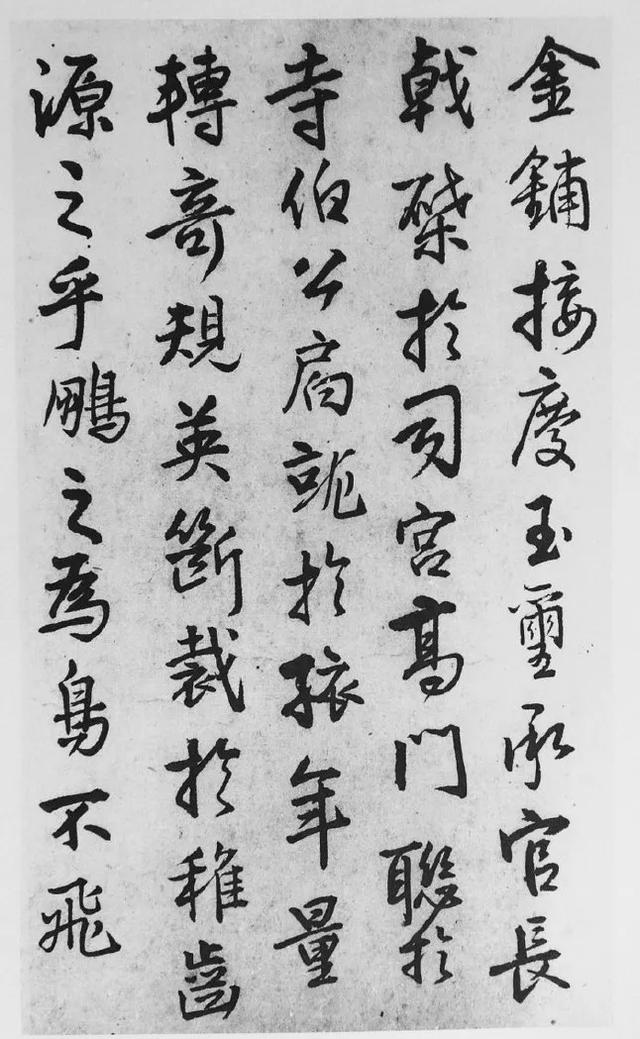 金鋪接慶玉璽承官長
戟槊於司宮高門聯於
寺伯公局詭於孩年量
轉奇規英斷裁於稚齒
源之乎鵬之為鳥不飛